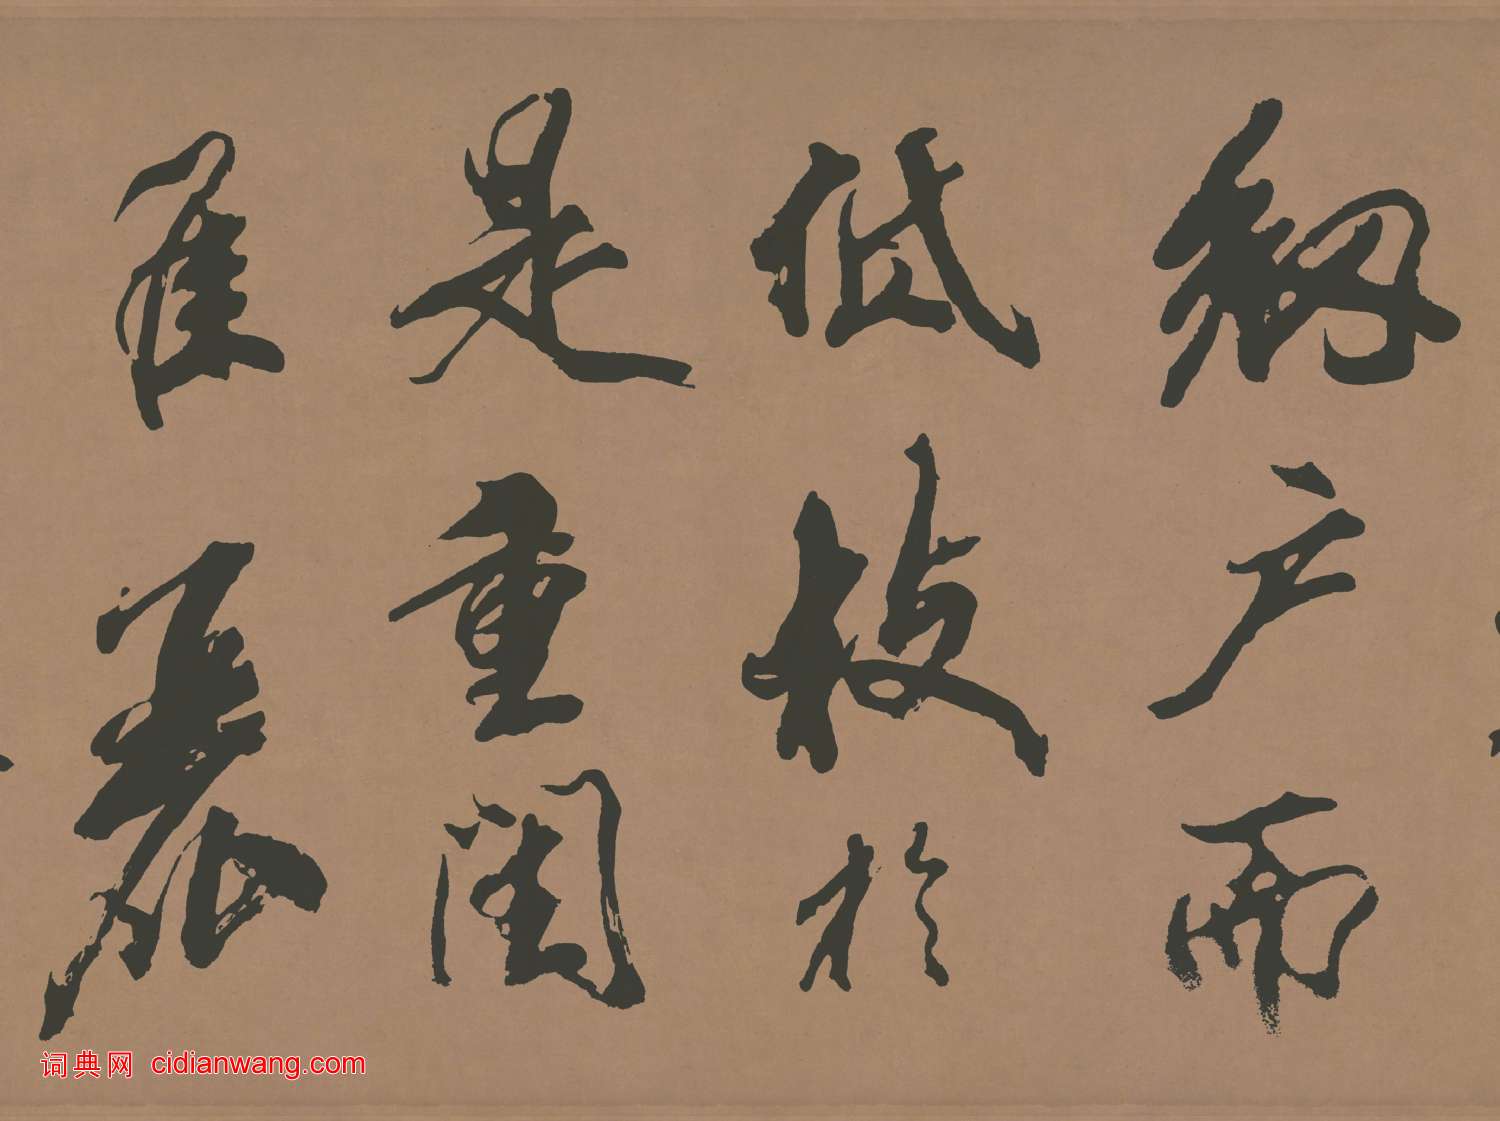 網户而
低枝於
是重閨
佳麗
词典网 cidianwang.com